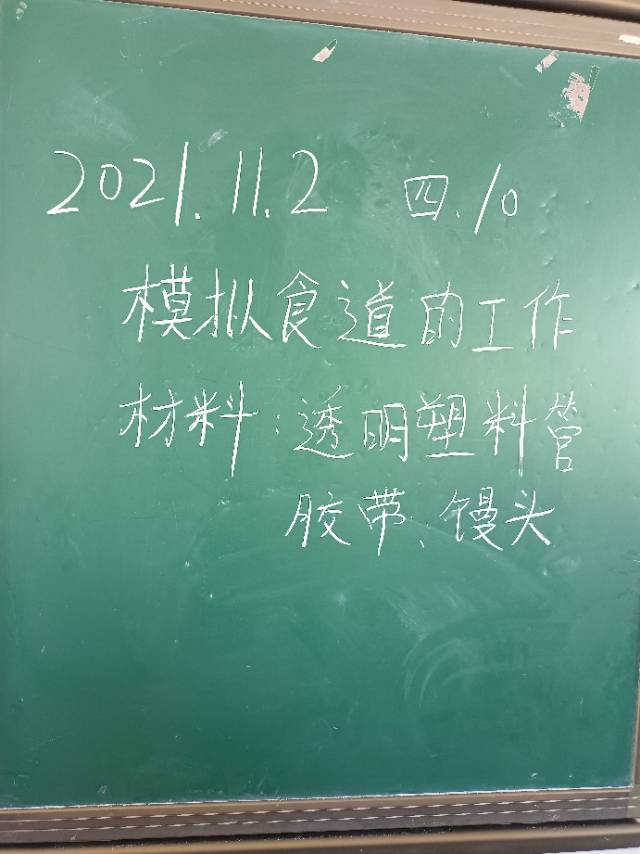 2021.11.2 四.10
模拟食道的工作
材料:透明塑料管
胶带、馒头